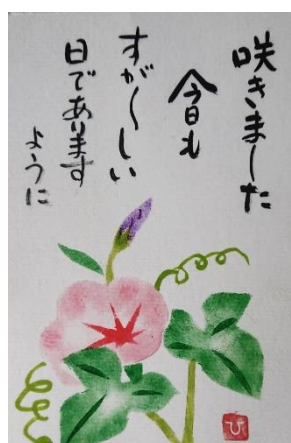 咲きました
今日も
すが〱しい
日であります
ように
ひ